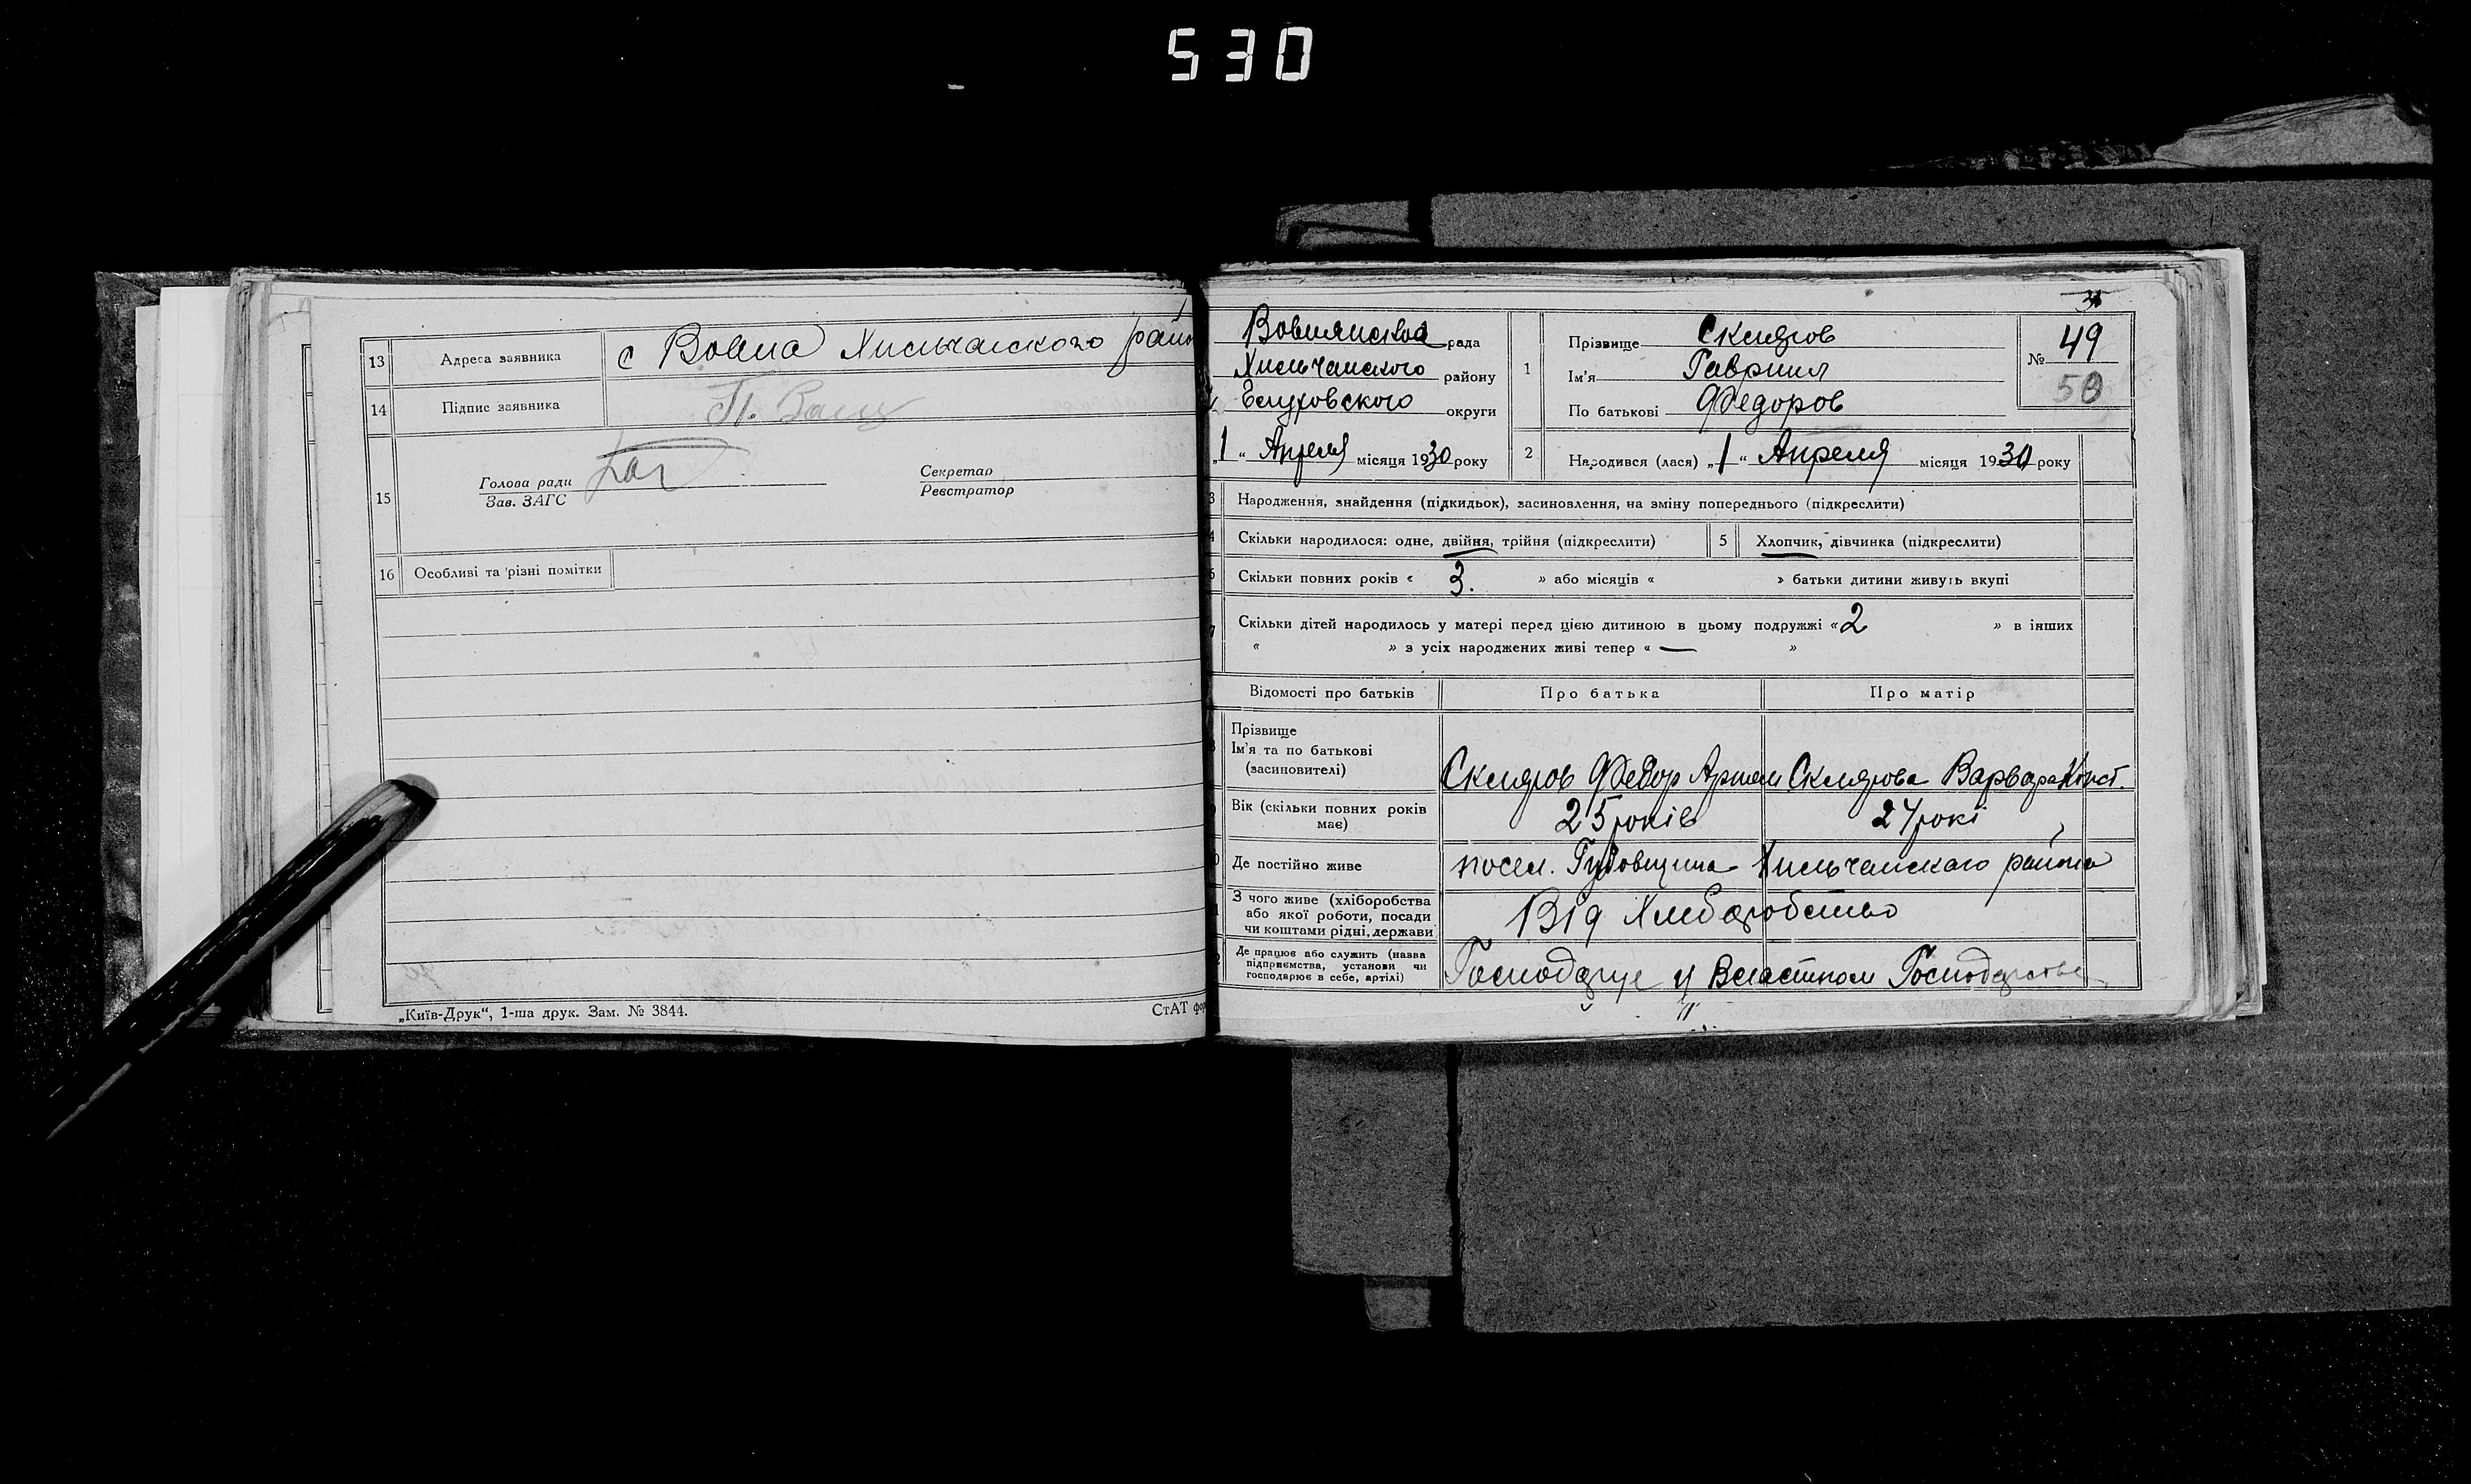 530
13 Адреса заявника с Вовна Хильчанского райо
14 Підпис заявника П.
15 Голова ради
Зав. ЗАГС
Секретар
Реєстратор
16 Особливі та різні помітки
„Київ-Друк“, 1-ша друк. Зам. № 3844.
СтАТ фор
Вовнянская рада
Хильчанского району
Глуховского округи
„1“ Апреля місяця 1930 року
1 Прізвище Скляров
Ім'я Гавриил
По батькові Федоров
№ 49
50
2 Народився (лася) „1“ Апреля місяця 1930 року
3 Народження, знайдення (підкидьок), засиновлення, на зміну попереднього (підкреслити)
4 Скільки народилося: одне, двійня, трійня (підкреслити)
5 Хлопчик, дівчинка (підкреслити)
6 Скільки повних років « 3. » або місяців « » батьки дитини живуть вкупі
7 Скільки дітей народилось у матері перед цією дитиною в цьому подружжі «2 » в інших
« » з усіх народжених живі тепер « — »
Відомості про батьків Про батька Про матір
Прізвище
Ім'я та по батькові
(засиновителі)
Скляров Федор Артем Склярова Варвара Конст.
Вік (скільки повних років
має)
25 років 24 рокі
Де постійно живе посел. Гудовщина Хильчанскаго района
З чого живе (хліборобства
або якої роботи, посади
чи коштами рідні, держави
Від Хлеборобство
Де працює або служить (назва
підприємства, установи чи
господарює в себе, артілі)
Господарує у Властном Господарстве